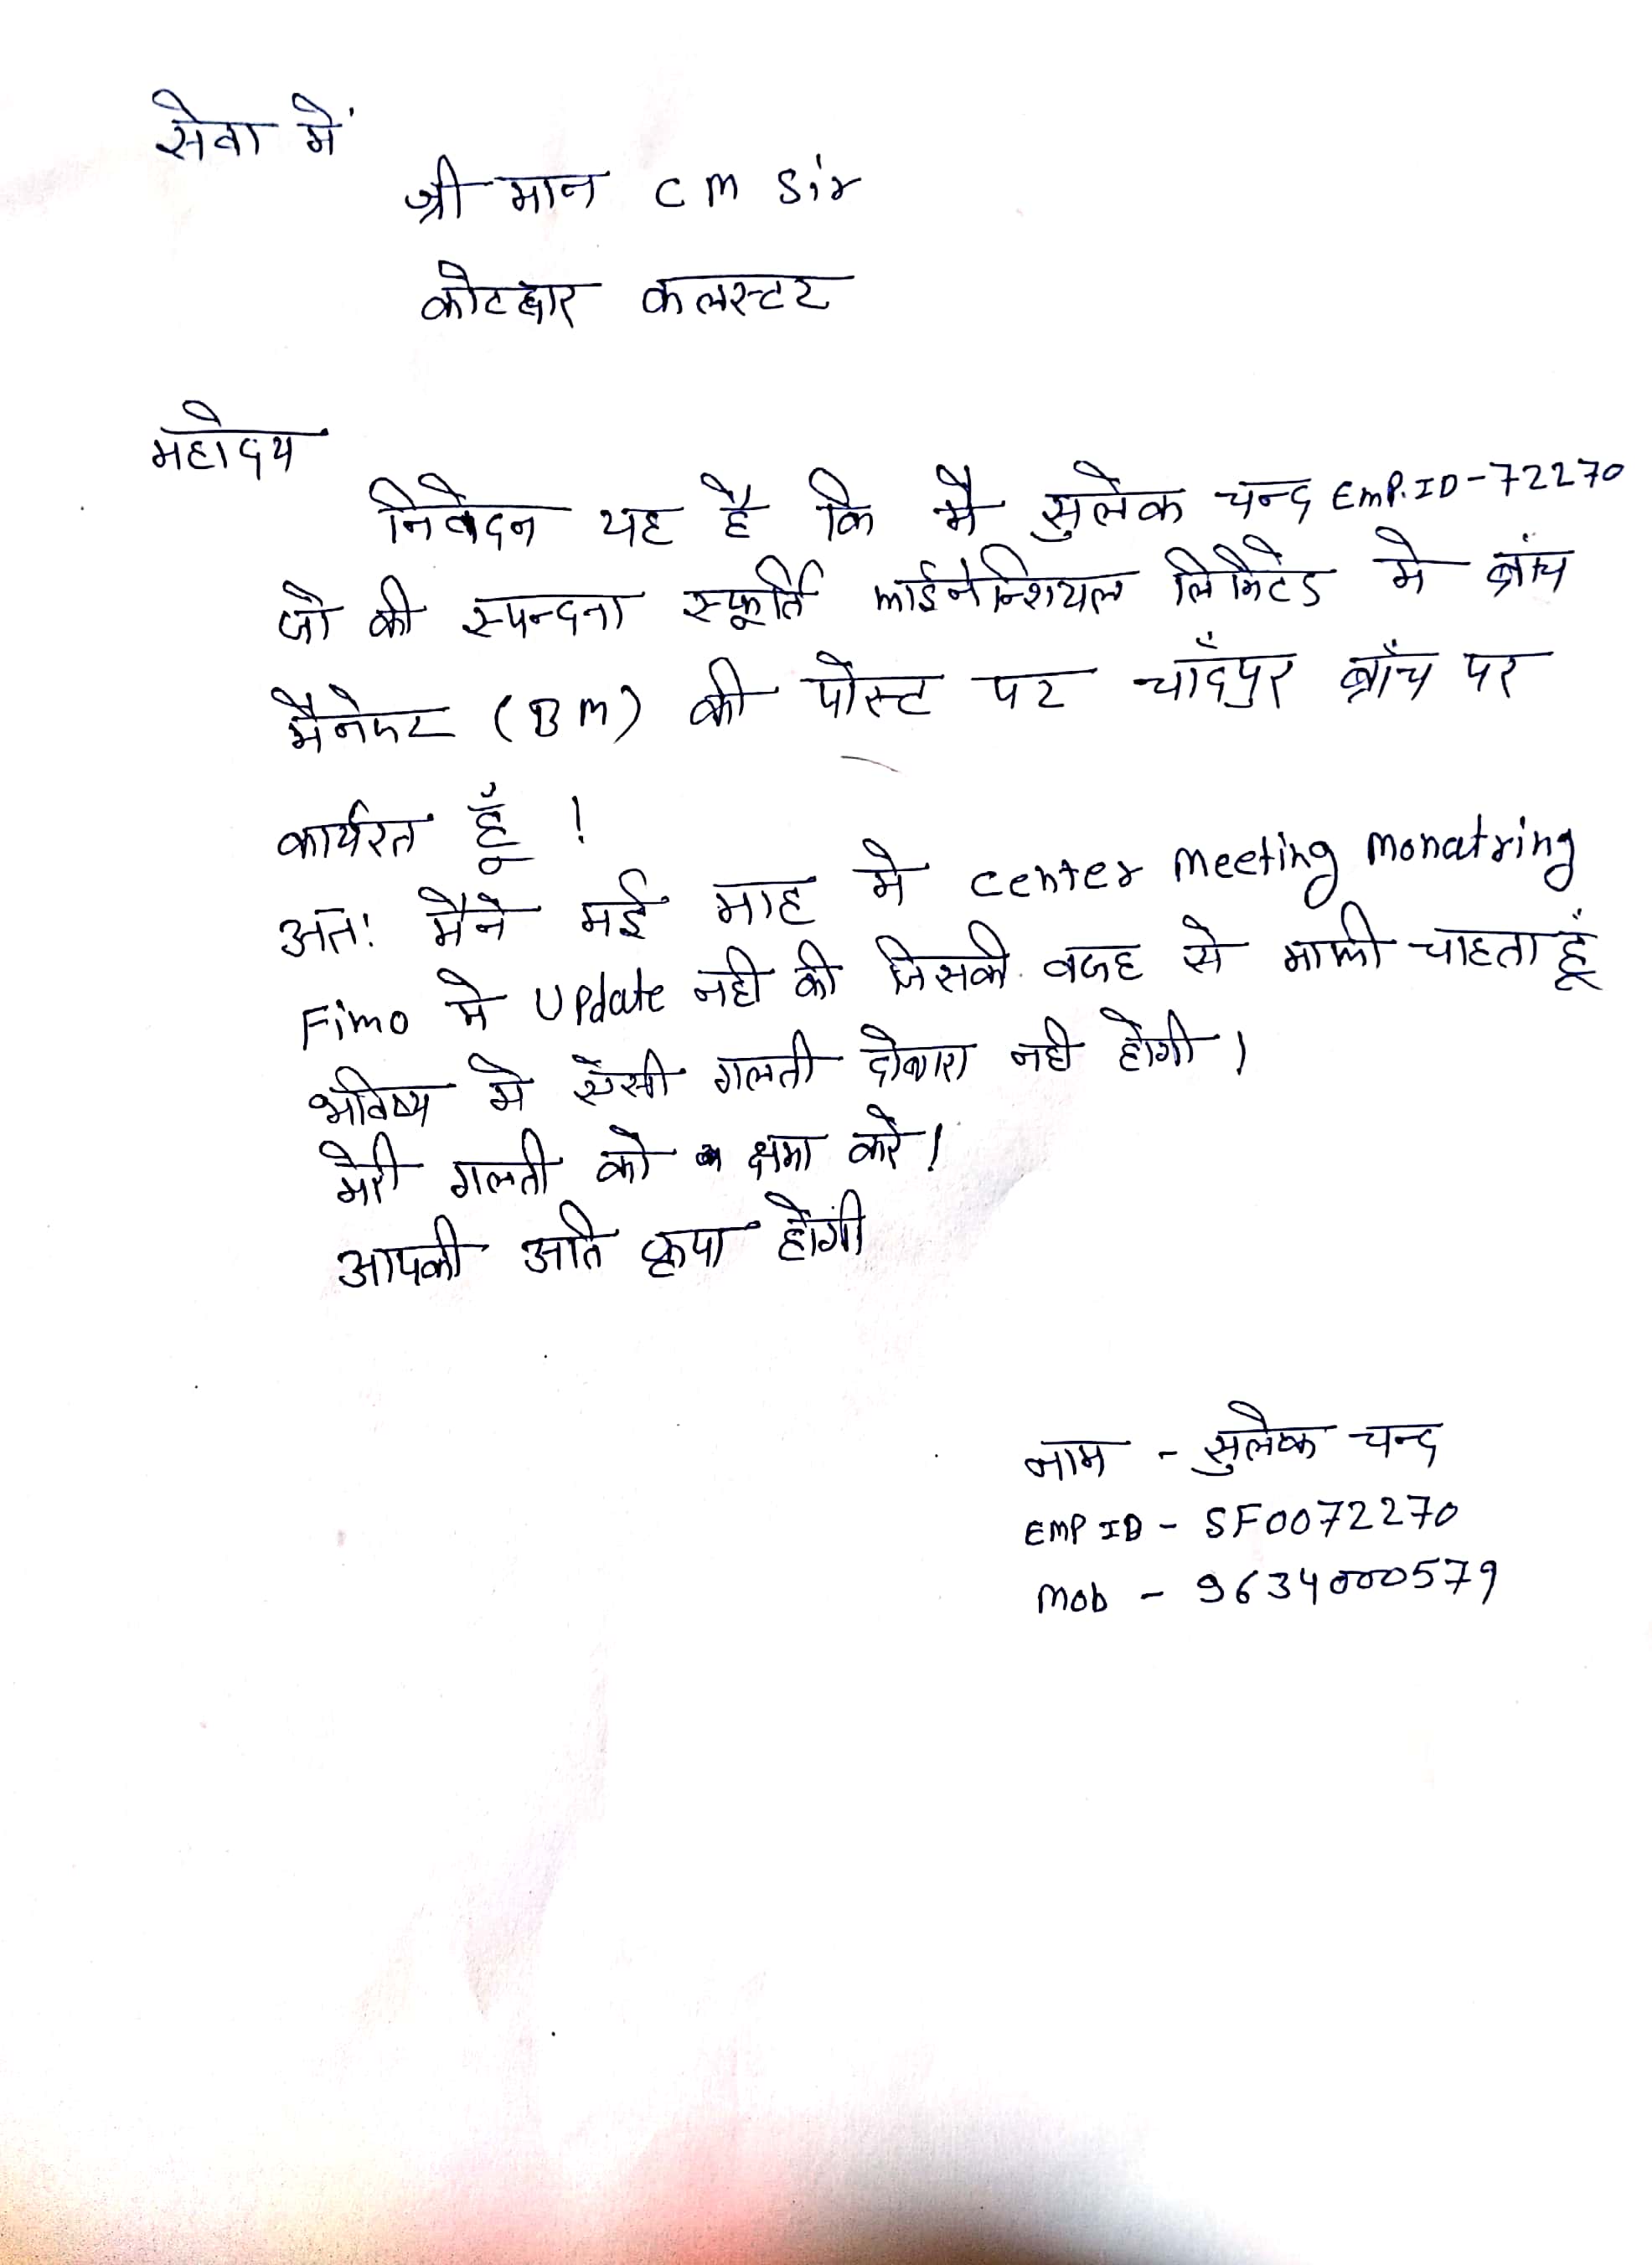 सेवा में
श्री मान CM Sir
कोटद्वार कलस्टर
महोदय
निवेदन यह है कि मै सुलेक चन्द EMP.ID-72270
जो की स्पन्दना स्फूर्ति फाईनेन्शियल लिमिटेड मे ब्रांच
मैनेजर (BM) की पोस्ट पर चाँदपुर ब्राँच पर
कार्यरत हूँ !
अत! मैने मई माह मे center Meeting Monatring
Fimo मे Update नही की जिसकी वजह से माफी चाहता हूँ
भविष्य मे ऐसी गलती दोबारा नही होगी।
मेरी गलती को क्षमा करे!
आपकी अति कृपा होगी
नाम - सुलेक चन्द
EMP ID - SF0072270
Mob - 9634000579